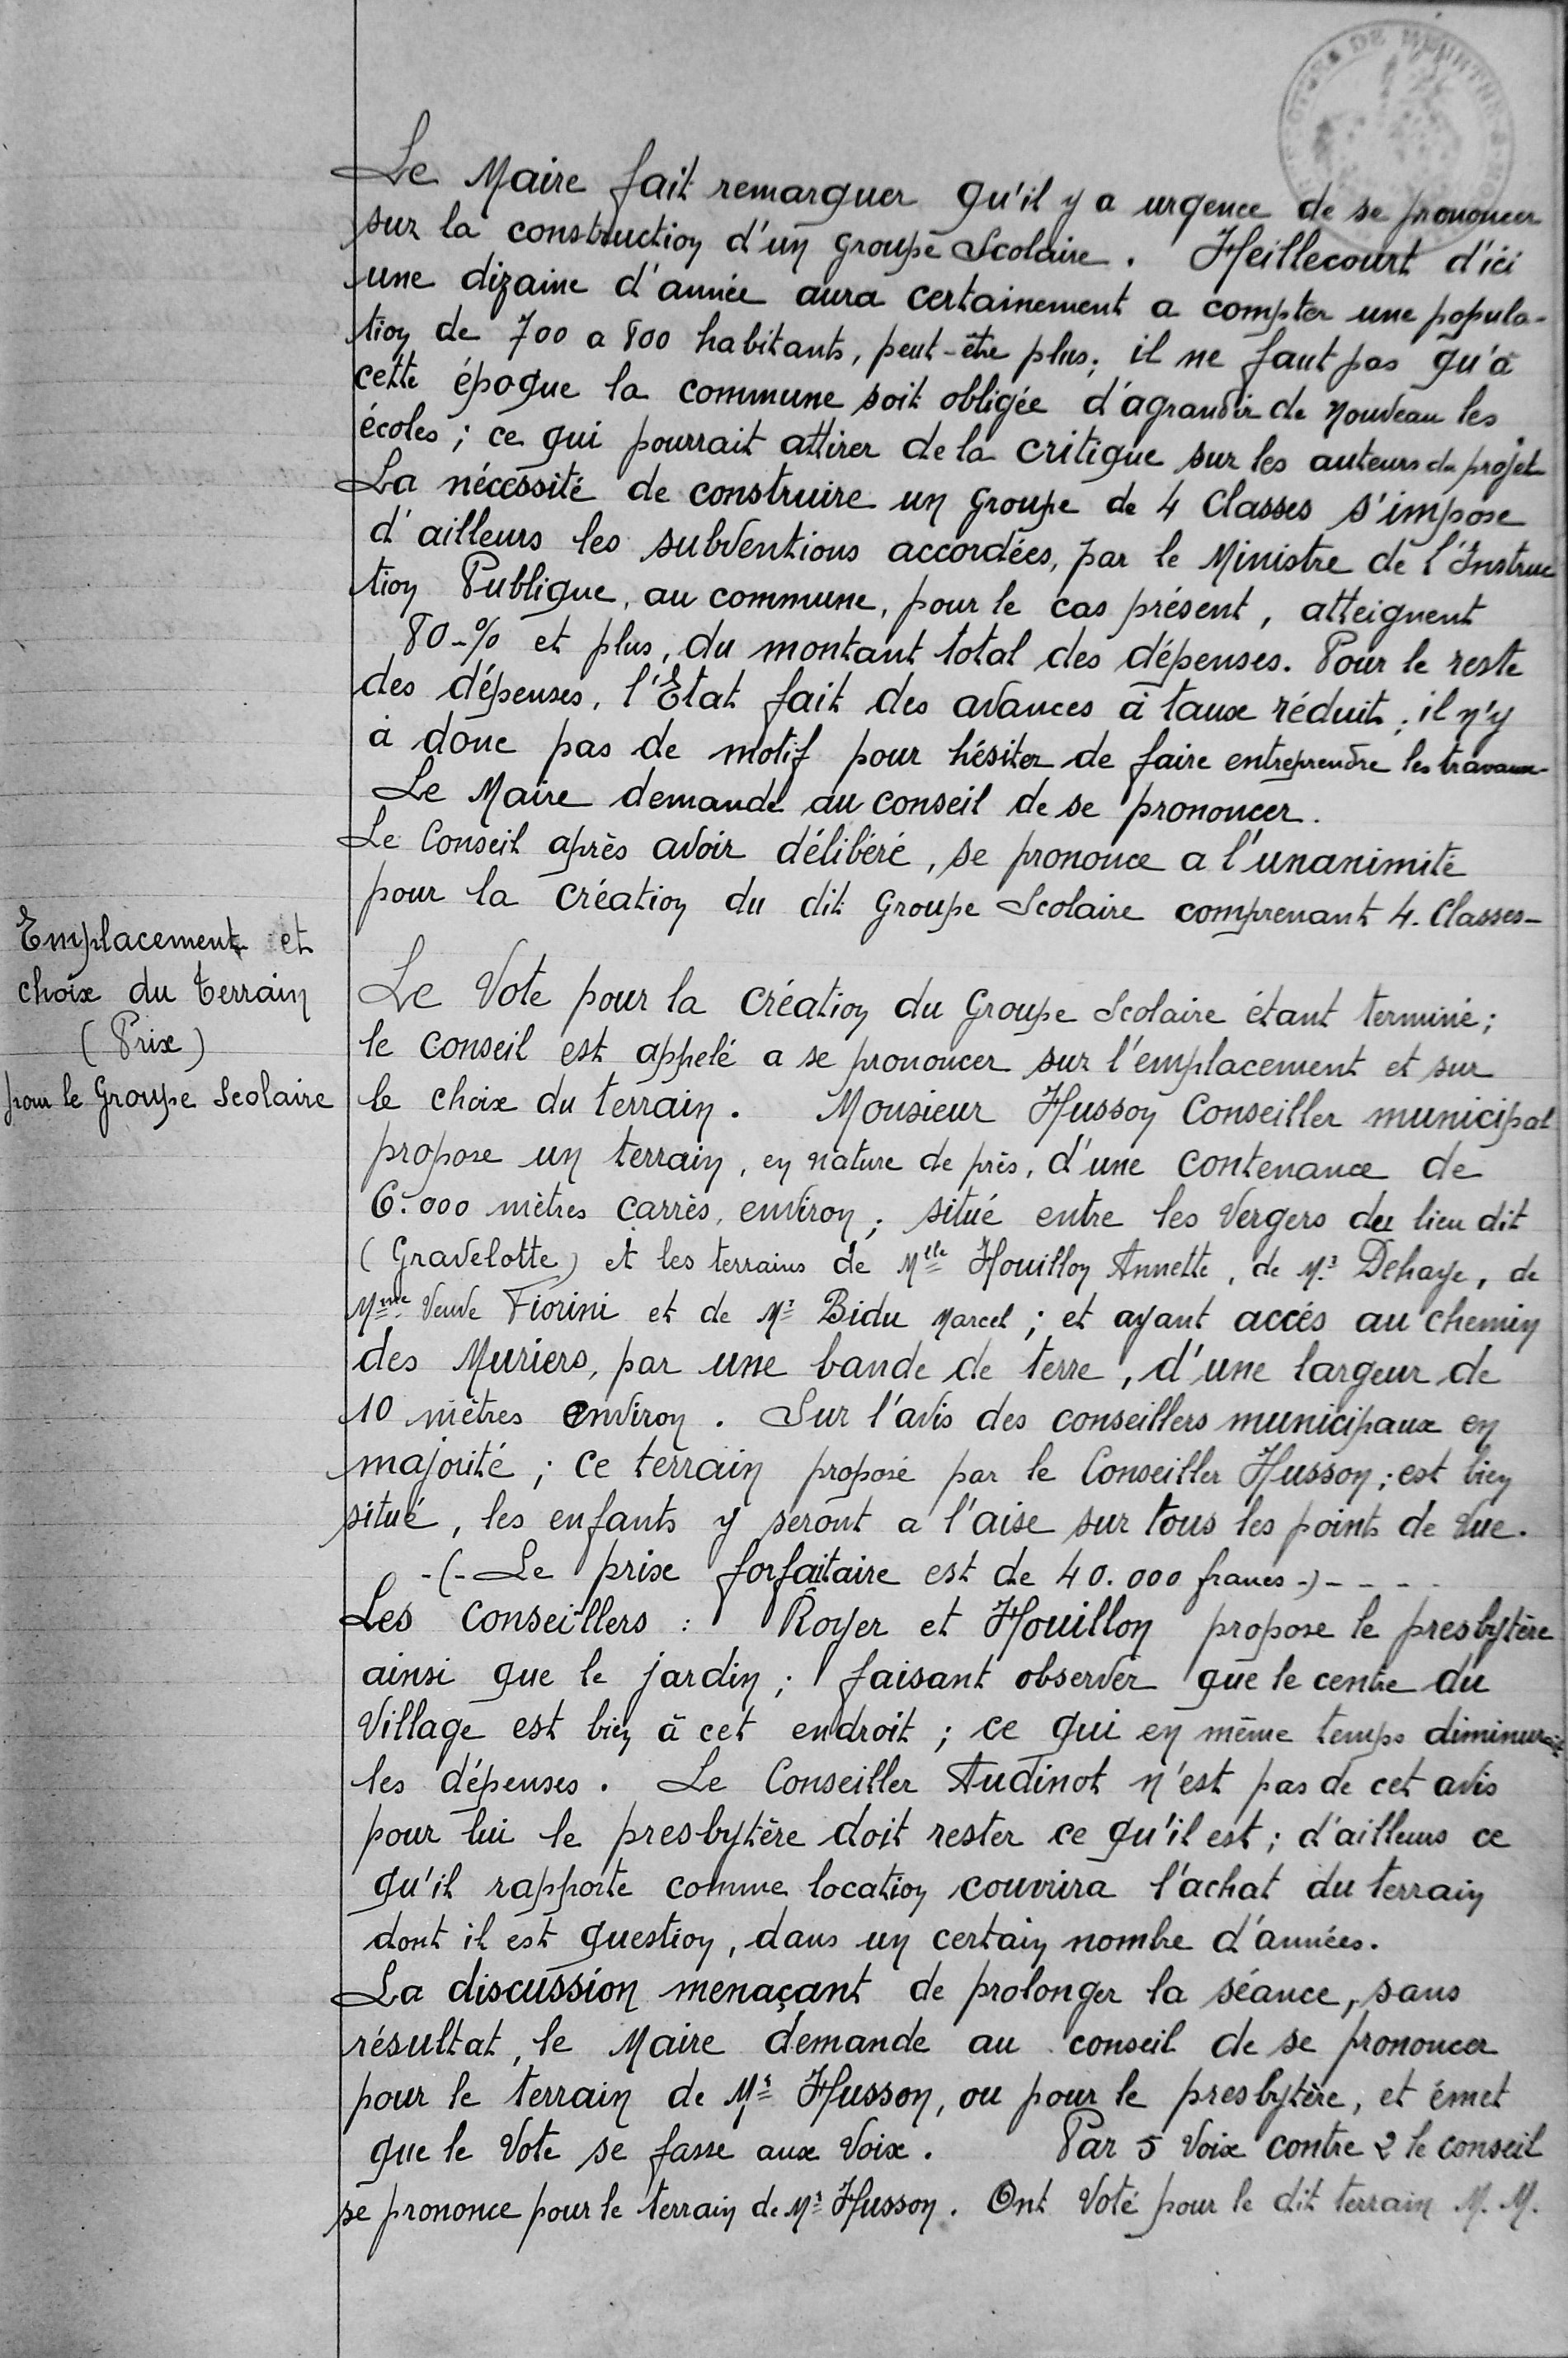 Le Maire fait remarquer qu'il y a urgence de se prononcer
sur la construction d'un groupe Scolaire. Heillecourt d'ici
une dizaine d'année aura certainement a compter une popula-
tion de 700 a 800 habitants, peut-être plus; il ne faut pas qu'à
cette époque la commune soit obligée d'agrandir de nouveau les
écoles; ce qui pourrait attirer de la critique sur les auteurs du projet
La nécessité de construire un groupe de 4 Classes s'impose
d'ailleurs les subventions accordées, par le Ministre de l'Instruc
tion Publique, au commune, pour le cas présent, atteignent
80-% et plus, du montant total des dépenses. Pour le reste
des dépenses, l'Etat fait des avances à taux réduit; il n'y
à donc pas de motif pour hésiter de faire entreprendre les travaux
Le Maire demande au conseil de se prononcer.
Le Conseil après avoir délibéré, se prononce a l'unanimité
pour la création du dit Groupe Scolaire comprenant 4. Classes-
Emplacement et
choix du terrain
(Prix)
pour le Groupe Scolaire
Le Vote pour la création du Groupe Scolaire étant terminé;
le conseil est appelé a se prononcer sur l'emplacement et sur
le choix du terrain. Monsieur Husson Conseiller municipal
propose un terrain, en nature de près, d'une contenance de
6.000 mètres carrés, environ; situé entre les Vergers du lieu dit
(Gravelotte) et les terrains de Mlle Houillon Annette, de Mr Dehaye, de
Mme Veuve Fiorini et de Mr Bidu Marcel; et ayant accés au chemin
des Muriers, par une bande de terre, d'une largeur de
10 mètres environ. Sur l'avis des conseillers municipaux en
majorité; ce terrain proposé par le Conseiller Husson; est bien
situé, les enfants y seront a l'aise sur tous les points de vue.
-(- Le prix forfaitaire est de 40.000 francs -)- - - -
Les conseillers: Royer et Houillon propose le presbytère
ainsi que le jardin; faisant observer que le centre du
Village est bien à cet endroit; ce qui en même temps diminuerait
les dépenses. Le Conseiller Audinot n'est pas de cet avis
pour lui le presbytère doit rester ce qu'il est; d'ailleurs ce
qu'il rapporte comme location couvrira l'achat du terrain
dont il est question, dans un certain nombre d'années.
La discussion menaçant de prolonger la séance, sans
résultat, le Maire demande au conseil de se prononcer
pour le terrain de Mr Husson, ou pour le presbytère, et émet
que le Vote se fasse aux Voix. Par 5 Voix contre 2 le conseil
se prononce pour le terrain de Mr Husson. Ont Voté pour le dit terrain M. M.